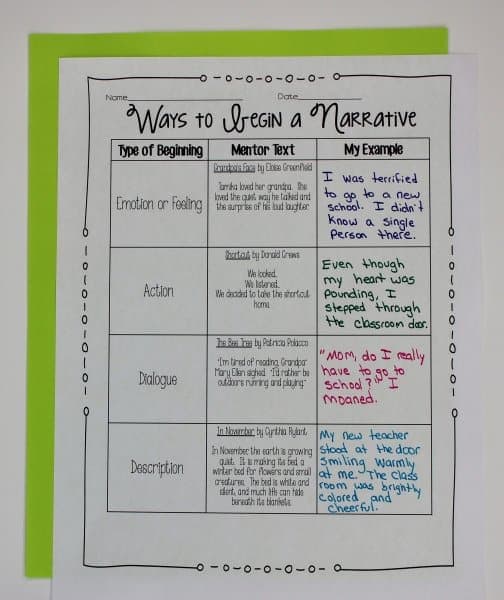 Name Date
Ways to Begin a Narrative
Type of Beginning Mentor Text My Example
Emotion or Feeling
Grandpa's Face by Eloise Greenfield
Tamika loved her grandpa. She
loved the quiet way he talked and
the surprise of his loud laughter.
I was terrified
to go to a new
school. I didn't
know a single
person there.
Action
Shortcut by Donald Crews
We looked.
We listened.
We decided to take the shortcut
home.
Even though
my heart was
pounding, I
stepped through
the classroom door.
Dialogue
The Bee Tree by Patricia Polacco
"I'm tired of reading, Grandpa"
Mary Ellen sighed. "I'd rather be
outdoors running and playing."
"Mom, do I really
have to go to
school?" I
moaned.
Description
In November by Cynthia Rylant
In November the earth is growing
quiet. It is making its bed, a
winter bed for flowers and small
creatures. The bed is white and
silent, and much life can hide
beneath its blankets.
My new teacher
stood at the door
smiling warmly
at me. The class
room was brightly
colored and
cheerful.